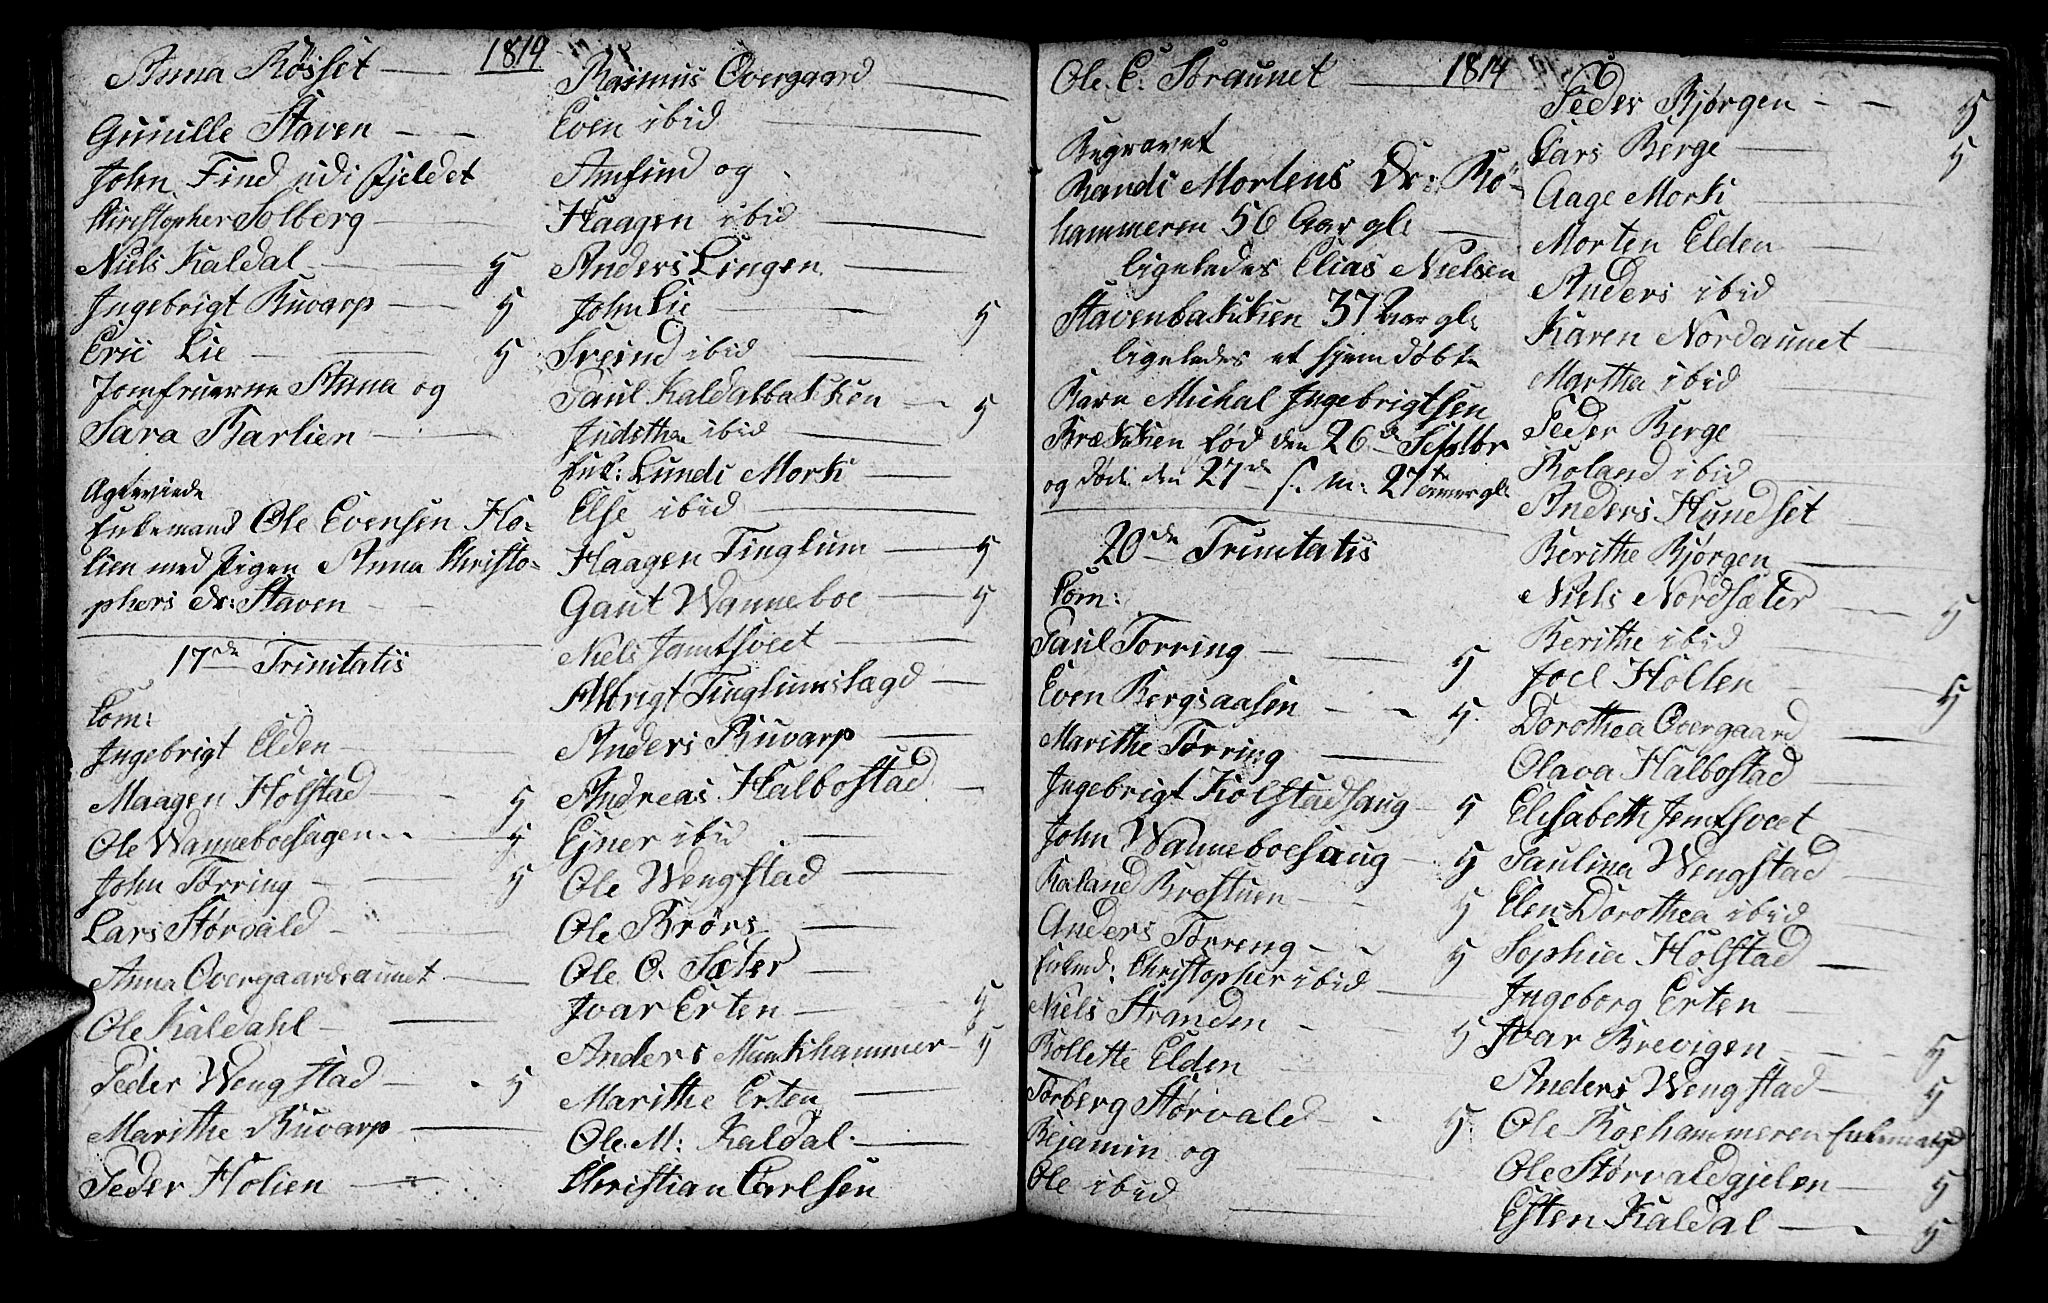 1814
Anna Røsset
Gunille Staven
John Find udi fjeldet
Christopher Solberg
Niels Kaldal 4
Ingebrigt Buvarp 4
Eric Lie 4
Jomfruerne Anna og
Sara Barlien
Ægteviede
Enkemand Ole Evensen Ho-
lien med pigen Anna Christo-
phers dr: Staven
17de Trinitatis
Com:
Ingebrigt Elden
Maagen Holstad 4
Ole Wanneboesagen 4
John Tørring 4
Lars Størvald
Anna Overgaardsaunet
Ole Kaldahl
Peder Wengstad 4
Marithe Buvarp
Peder Holien
Rasmus Overgaard
Even ibid
Amfind og
Haagen ibid
Anders Lingen
John Lie 4
Sveind ibid
Paul Kaldalbakken 4
Judithe ibid
Enk: Lundi Mork
Else ibid
Haagen Tinglum 4
Gaut Wanneboe 4
Niels Jamtsveet
Albrigt Tinglumslagd
Anders Buvarp
Andreas Halbostad
Ejner ibid
Ole Wengstad
Ole Brørs
Ole O. Sæter
Ivar Erten 4
Anders Munkhammer 4
Marithe Erten
Ole M: Kaldal
Christian Carlsen
1814
Ole E. Braunet
Begravet
Randi Mortens Dr: Rö-
hammeren 56 Aar gl:
ligeledes Elias Nielsen
Stavenbakken 37 Aar gl:
ligeledes et hjemdøbt
Barn Michal Ingebrigtsen
Brækken fød den 26de Septbr
og døde den 27de s. m: 27 timer gl:
20de Trinitatis
Com:
Paul Torring 4
Even Bergsaasen 4
Marithe Tørring
Ingebrigt Kolstadhaug 4
John Wanneboesaug 4
Roland Brostuen 4
Anders Tørreng 4
Enkmd: Christopher ibid
Niels Stranden 4
Rollette Elden
Torberg Størvald 4
Bejamin og
Ole ibid
Peder Bjørgen 4
Lars Berge 4
Aage Mork
Morten Elden
Anders ibid
Karen Nordaunet
Martha ibid
Peder Berge
Roland ibid
Anders Hundset
Berithe Bjørgen
Niels Nordsæter 4
Berithe ibid
Joel Hollen 4
Dorothea Overgaard
Olava Halbostad
Elisabeth Jemtsveet
Paulina Wengstad
Elen Dorothea ibid
Sophia Holstad
Ingeborg Erten
Ivar Brevigen 4
Anders Wengstad 4
Ole Roehammeren Enkemand
Ole Størvaldgjelen 4
Esten Kaldal 4